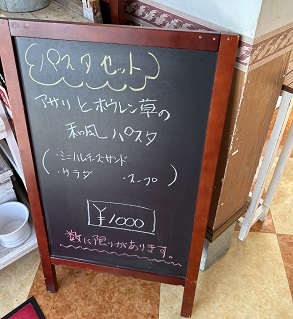 パスタセット
アサリとホウレン草の
和風パスタ
・ミニハムチーズサンド
・サラダ ・スープ
¥1000
数に限りがあります。